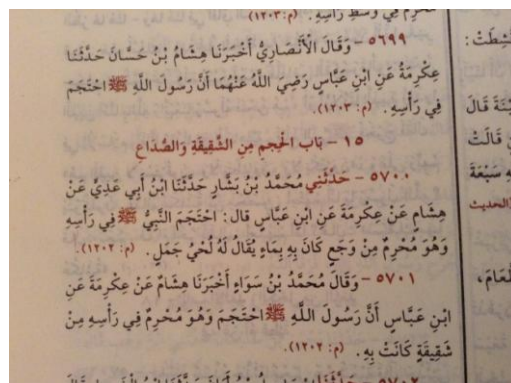 مُحْرِمٌ فِي وَسَطِ رَأْسِهِ. (م: ١٢٠٣)
٥٦٩٩ - وَقَالَ الْأَنْصَارِيُّ أَخْبَرَنَا هِشَامُ بْنُ حَسَّانَ حَدَّثَنَا
عِكْرِمَةُ عَنِ ابْنِ عَبَّاسٍ رَضِيَ اللَّهُ عَنْهُمَا أَنَّ رَسُولَ اللَّهِ ﷺ احْتَجَمَ
فِي رَأْسِهِ. (م: ١٢٠٣).
١٥ - بَابُ الْحَجمِ مِنَ الشَّقِيقَةِ وَالصُّدَاعِ
٥٧٠٠ - حَدَّثَنِي مُحَمَّدُ بْنُ بَشَّارٍ حَدَّثَنَا ابْنُ أَبِي عَدِيٍّ عَنْ
هِشَامٍ عَنْ عِكْرِمَةَ عَنِ ابْنِ عَبَّاسٍ قال: احْتَجَمَ النَّبِيُّ ﷺ فِي رَأْسِهِ
وَهُوَ مُحْرِمٌ مِنْ وَجَعٍ كَانَ بِهِ بِمَاءٍ يُقَالُ لَهُ لُحْيُ جَمَلٍ. (م: ١٢٠٢).
٥٧٠١ - وَقَالَ مُحَمَّدُ بْنُ سَوَاءٍ أَخْبَرَنَا هِشَامٌ عَنْ عِكْرِمَةَ عَنِ
ابْنِ عَبَّاسٍ أَنَّ رَسُولَ اللَّهِ ﷺ احْتَجَمَ وَهُوَ مُحْرِمٌ فِي رَأْسِهِ مِنْ
شَقِيقَةٍ كَانَتْ بِهِ. (م: ١٢٠٢).
قَالَ
قَالَتْ
سَبْعَةَ
الحديث